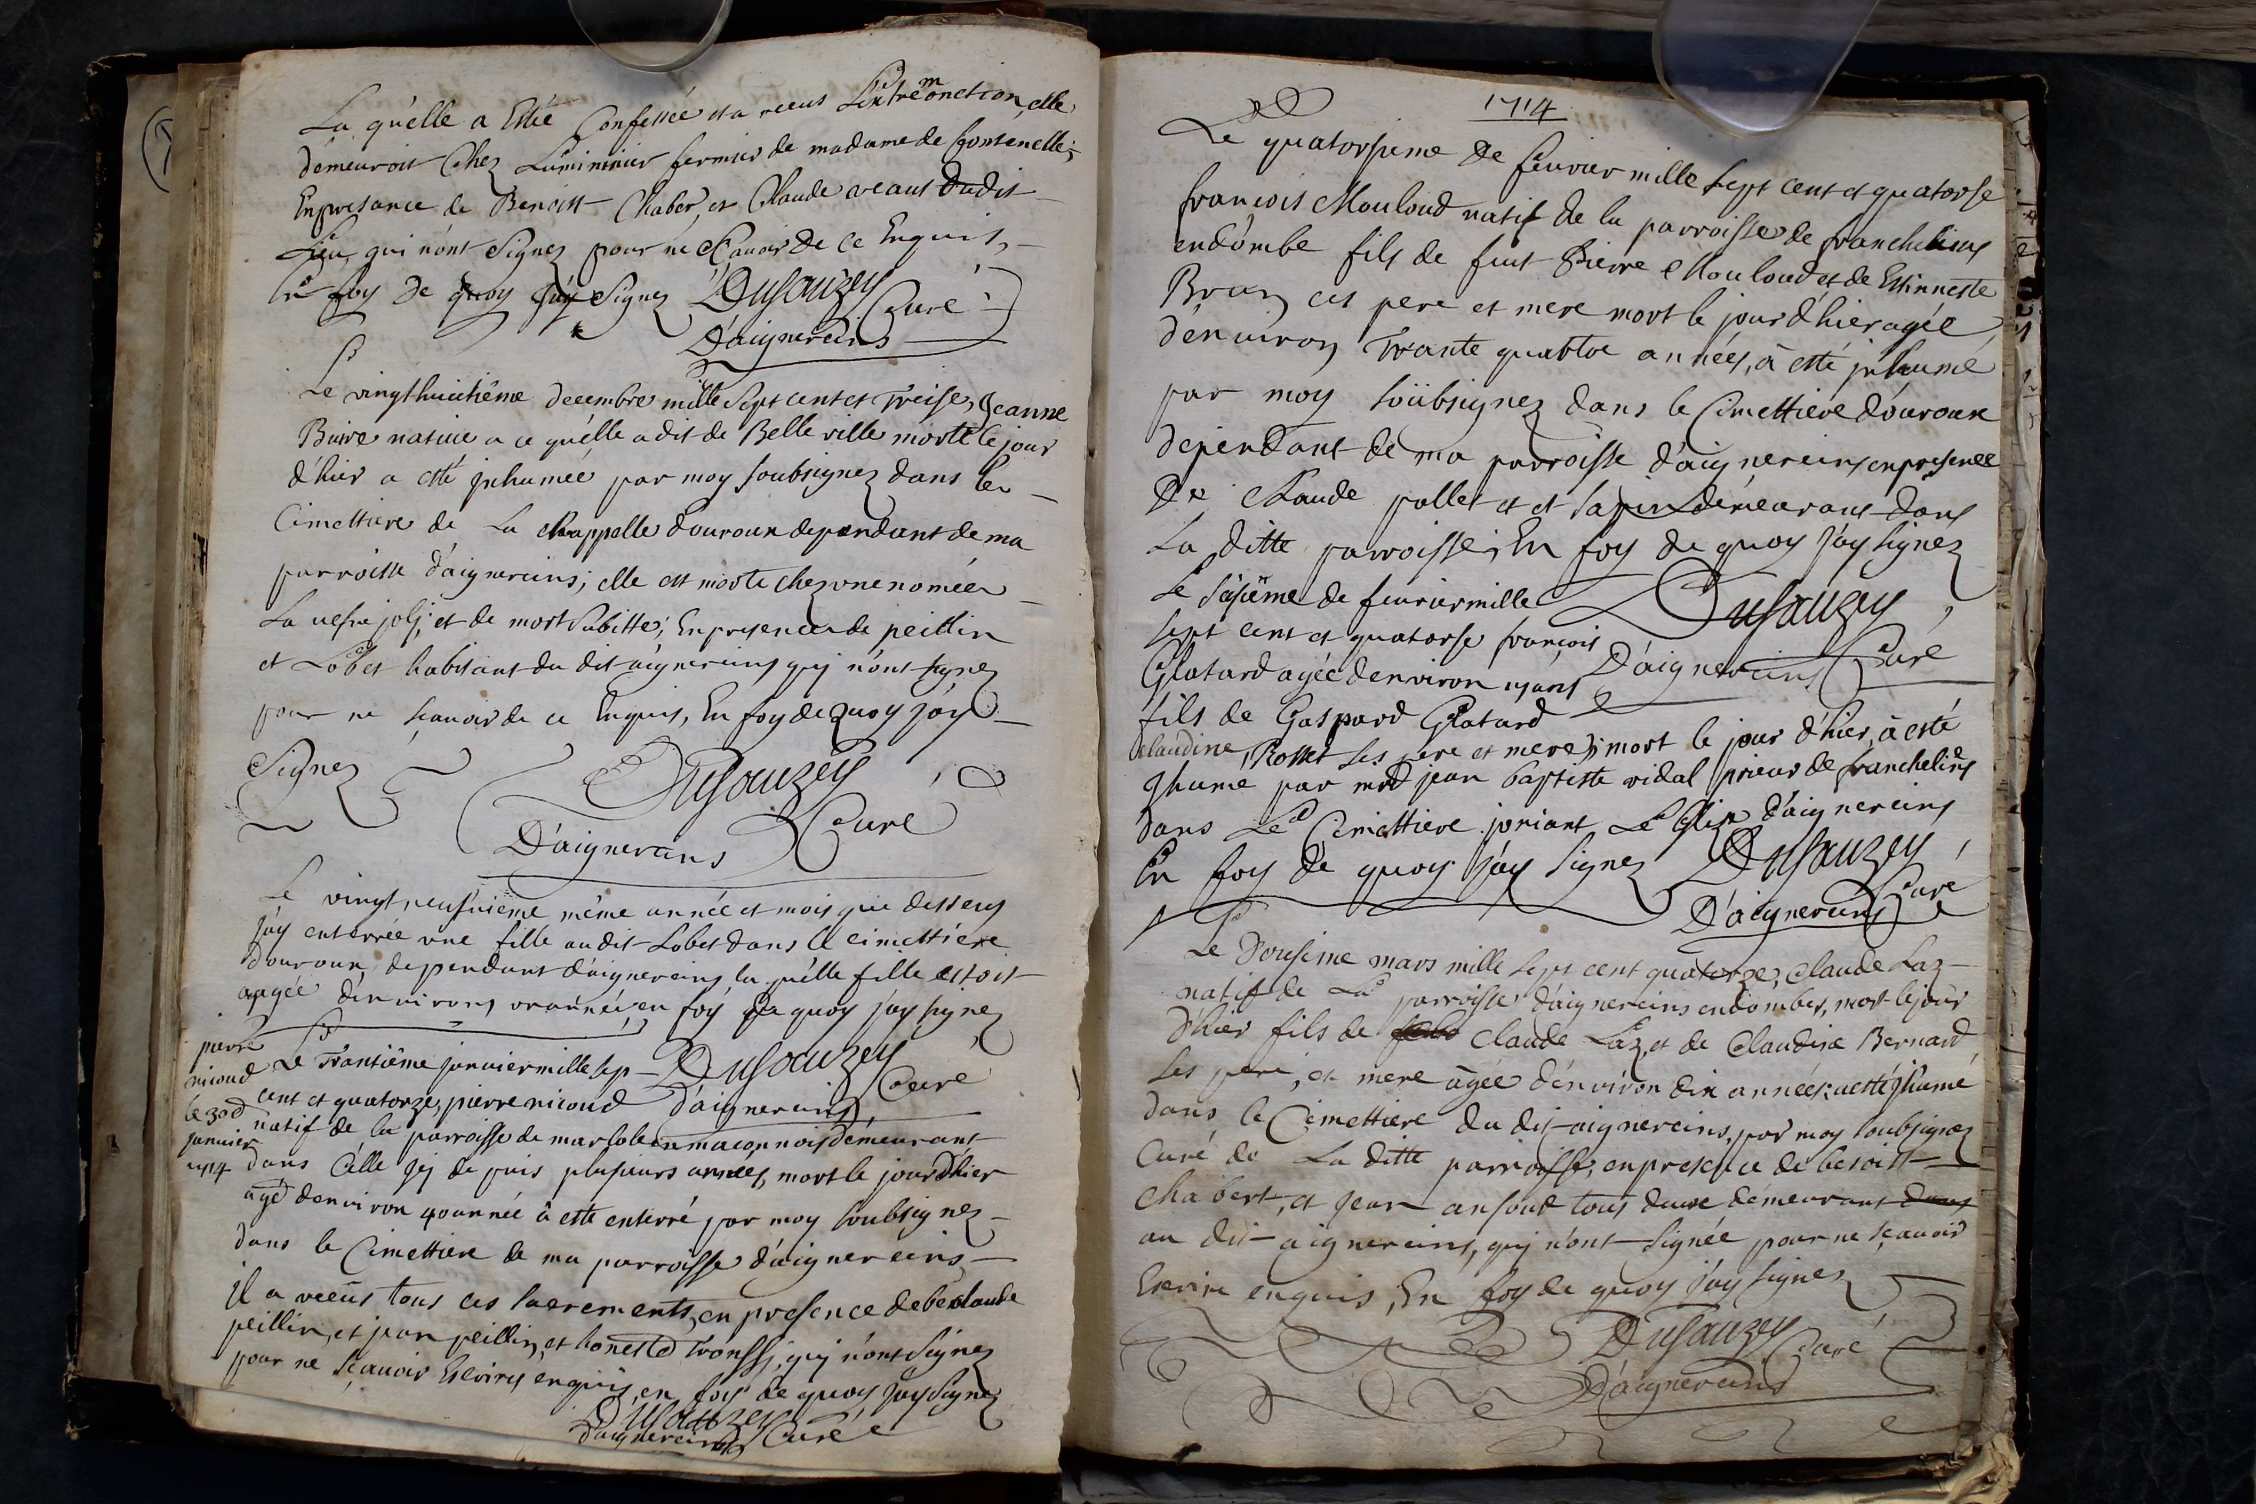 La quelle a Esté Confessée et a receus L'extrêmonction, elle
demeuroit Chez Luminier fermier de madame de fontenelle;
En presance de Benoist Chaber, et Claude dudit
Lieu, qui n'ont Signez pour ne Scavoir de ce Enquis,
En foy de quoy j'ay Signez Dusauzey Curé
D'aignereins
Le vingt huictiême decembre mille Sept cent et Treise, Jeanne
Buire nativé a ce qu'elle a dit de Belle ville morte le jour
d'hier a esté jnhumée par moy soubsignez dans le
Cimettiere de La chappelle d'ouroux dependant de ma
parroisse d'aignereins; elle est morte chez une nomée
La jolj, et de mort Subitte; En presence de peillin
et Lobet habitant du dit aignereins quj n'ont signez
pour ne scavoir de ce Enquis, En foy de quoy j'ay
Signez Dusauzey
D'aignereins Curé
Le vingt neufuieme même année et mois que dessus
j'ay enterrée une fille audit Lobet dans le cimettiere
d'ouroux, dependant d'aignereins, la quelle fille estoit
aagée d'environs un année, en foy de quoy j'ay signez
pierre
nicoud
le 30d
janvier
1714
Le Trantiême janvier mille sep Dusauzey
cent et quatorze, pierre nicoud d'aignereins Curé
natif de la parroisse de en maconnois demeurant
dans Celle Cy de puis plusieurs années, mort le jour d'hier
agé d'environ 40 année à esté enterré par moy soubsignez
dans le Cimettiere de ma parroisse d'aignereins
jl a receüs tous ces sacrements, en presence de claude
peillin, et jean peillin, et honest quj n'ont Signez
pour ne Scavoir Escrire enquis, en foy de quoy j'ay Signez
Dusauzey
d'aignereins Curé
1714
Le quatorsieme De feuvrier mille sept cent et quatorse
francois Mouloud natif de la parroisse de franchelins
en d'ombe fils de fut Pierre Mouloud et de Estinnette
Brun ces pere et mere mort le jour d'hier agée
d'environ Trante quattre années, à esté jnhumé
par moy soübsignez dans le Cimettiere d'ouroux
dependant de ma parroisse d'aignereins en presence
De Claude pollet et et sapin demeurans dans
La ditte parroisse, En foy de quoy j'ay signez
Le Sàsieme de feuvrier mille Dusauzey
sept cent et quatorse francois D'aignereins Curé
Glatard agée d'environ ans
fils de Gaspard Glatard
claudine Rosset ses pere et mere; mort le jour d'hier, à esté
Jhume par jean baptiste vidal prieur de franchelins
dans Le Cimettiere joniant L'eglise d'aignereins
En foy de quoy j'ay Signez Dusauzey
D'aignereins Curé
Le Dousieme mars mille sept cent quatorze, Claude Laz
natif de La parroisse d'aignereins en dombes, mort le jour
d'hier fils de Claude Laz, et de Claudine Bernard
ses pere, et mere agée d'environ dix années: a esté Jhumé
dans le Cimettiere du dit aignereins, par moy soubsignez
Curé de La ditte parroisse, en presence de benoist
chabert, et Jean ansoud tous deux demeurant dans
au dit aignereins, quj n'ont signée pour ne sçavoir
Escrire enquis, En foy de quoy j'ay signez
Dusauzey Curé
D'aignereins